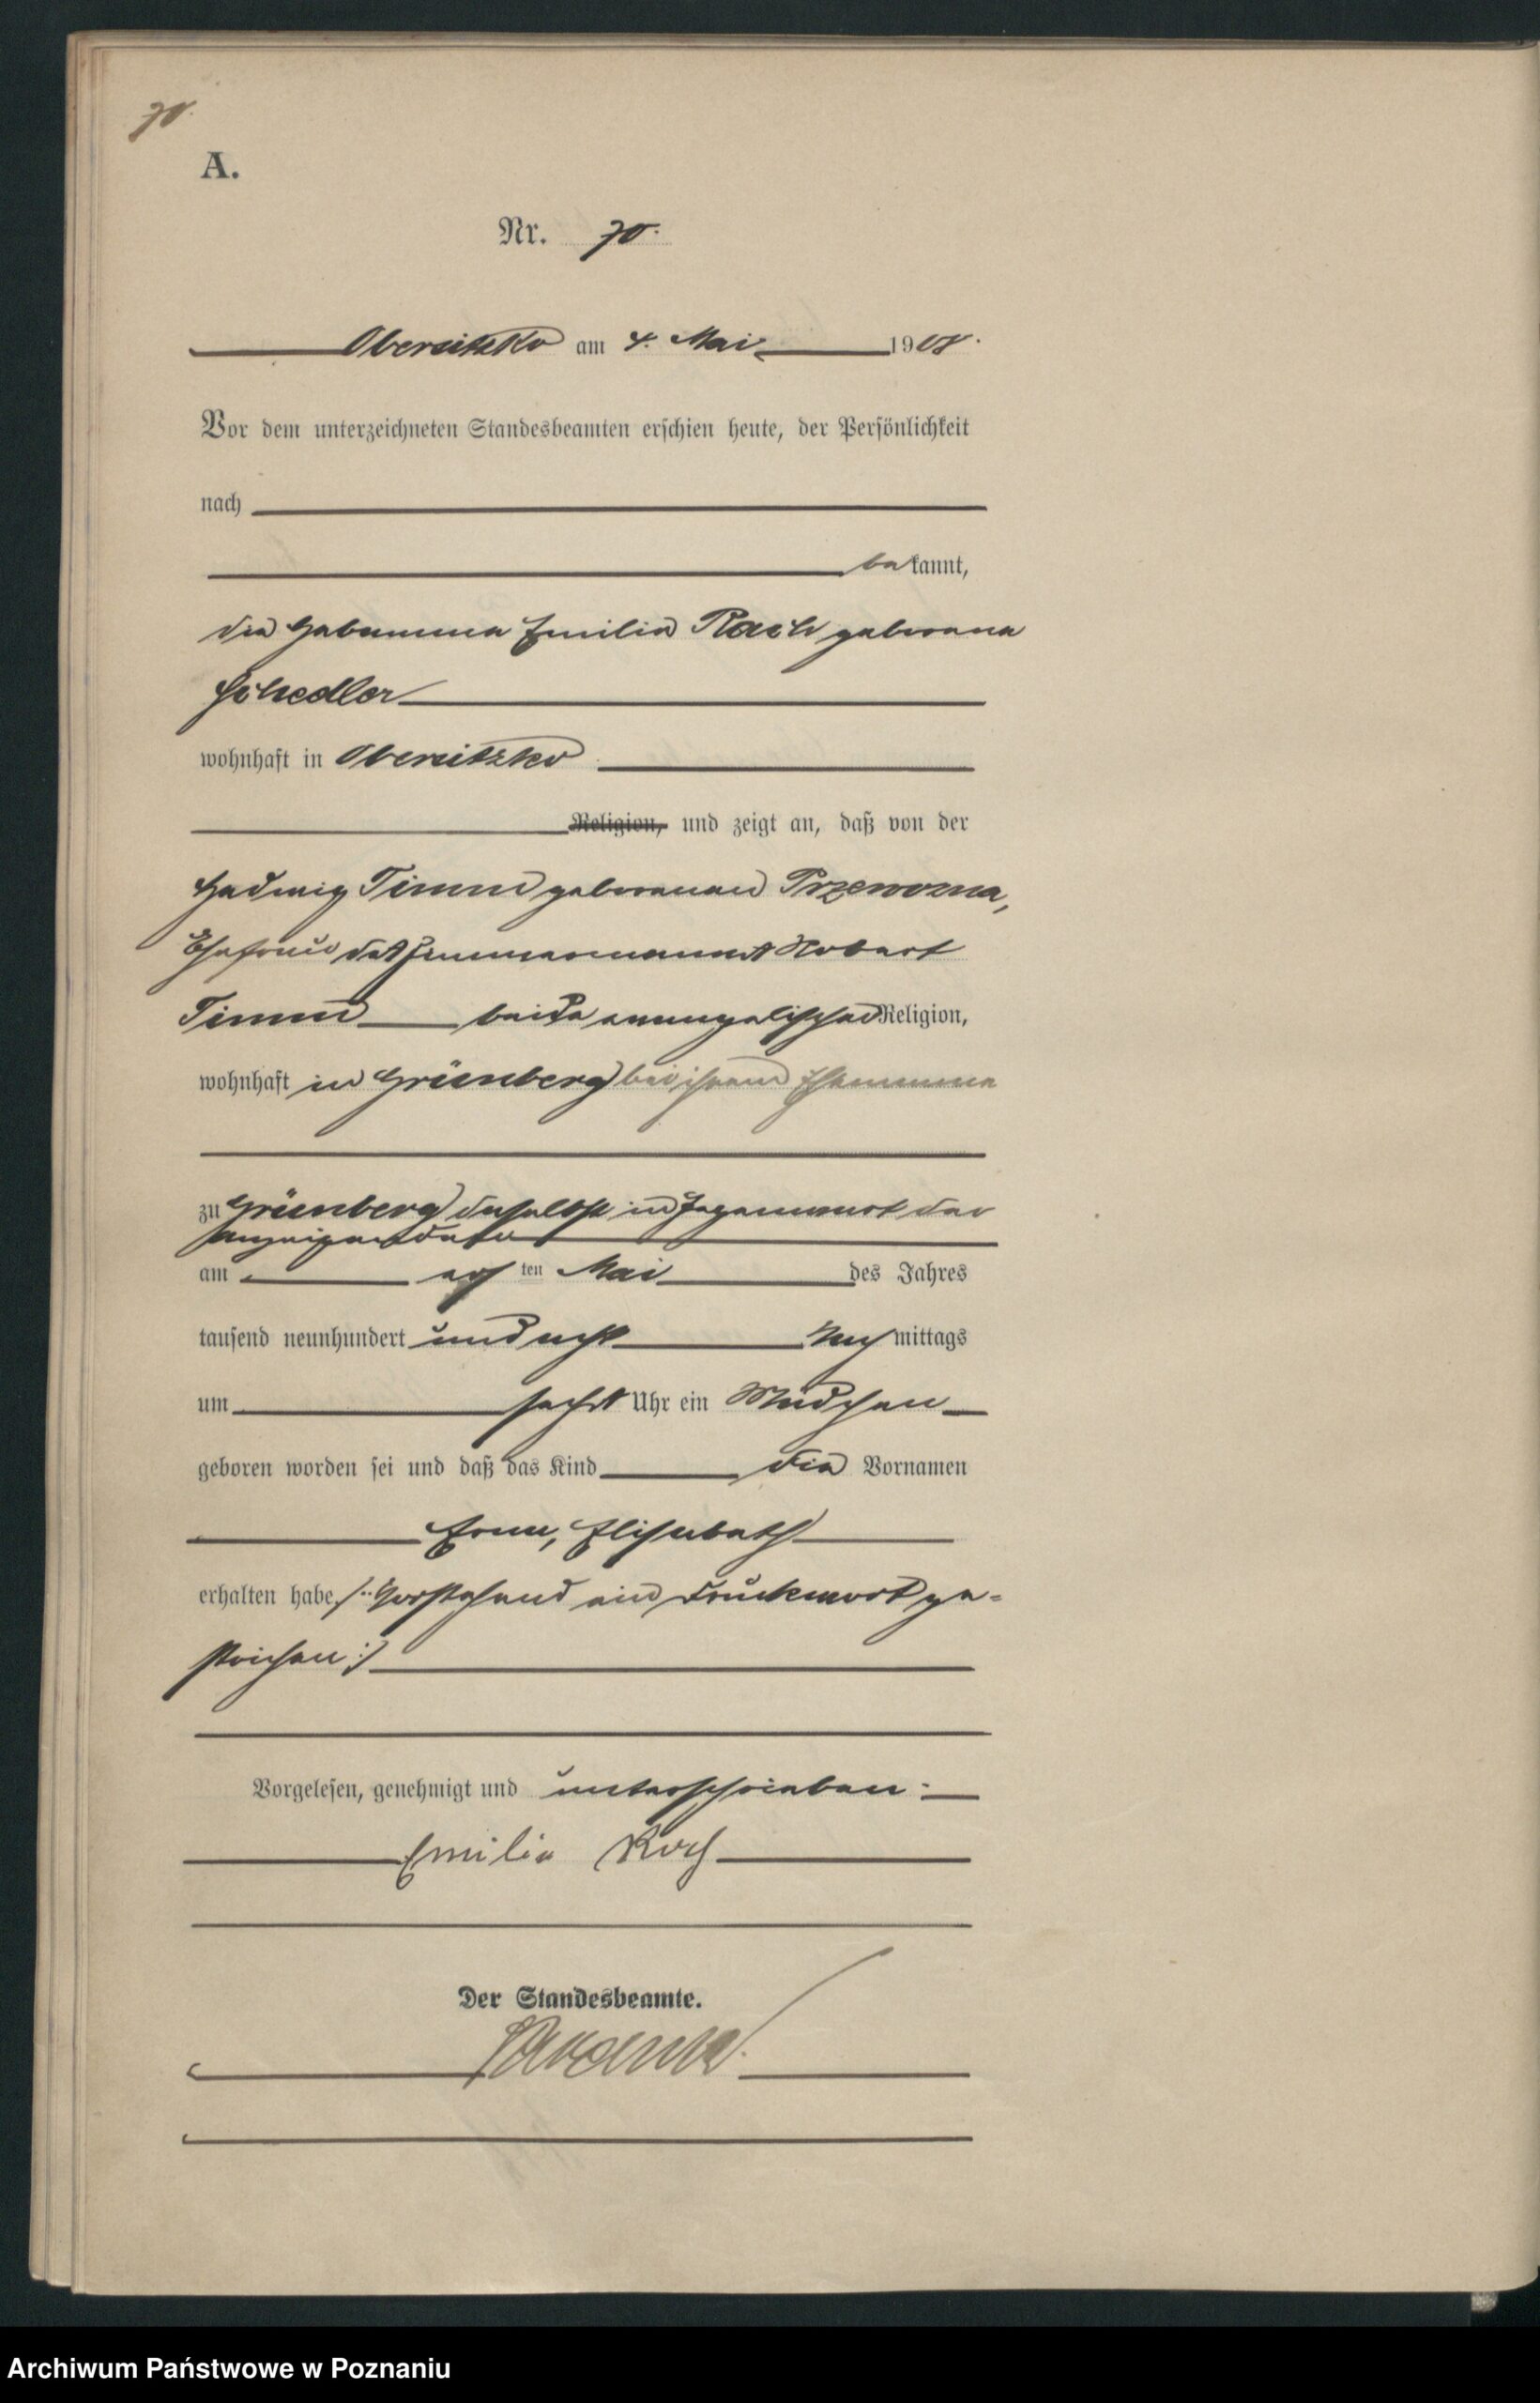 70.
A.
Nr. 70.
Obersitzko am 4. Mai 1908.
Vor dem unterzeichneten Standesbeamten erschien heute, der Persönlichkeit
nach
bekannt,
die Hebamme Emilie Rach geborene
Schedler
wohnhaft in Obersitzko
Religion, und zeigt an, daß von der
Hedwig Timm geborenen Przewozna,
Ehefrau des Zimmermanns Robert
Timm beide evangelischer Religion,
wohnhaft in Grünberg bei ihrem Ehemanne
zu Grünberg daselbst in Gegenwart der
Anzeigenden
am ersten Mai des Jahres
tausend neunhundert und acht Nachmittags
um sechs Uhr ein Mädchen
geboren worden sei und daß das Kind die Vornamen
Erna, Elisabeth
erhalten habe /: Vorstehend ein Druckwort ge-
strichen :/
Vorgelesen, genehmigt und unterschrieben:
Emilie Rach
Der Standesbeamte.
Archiwum Państwowe w Poznaniu